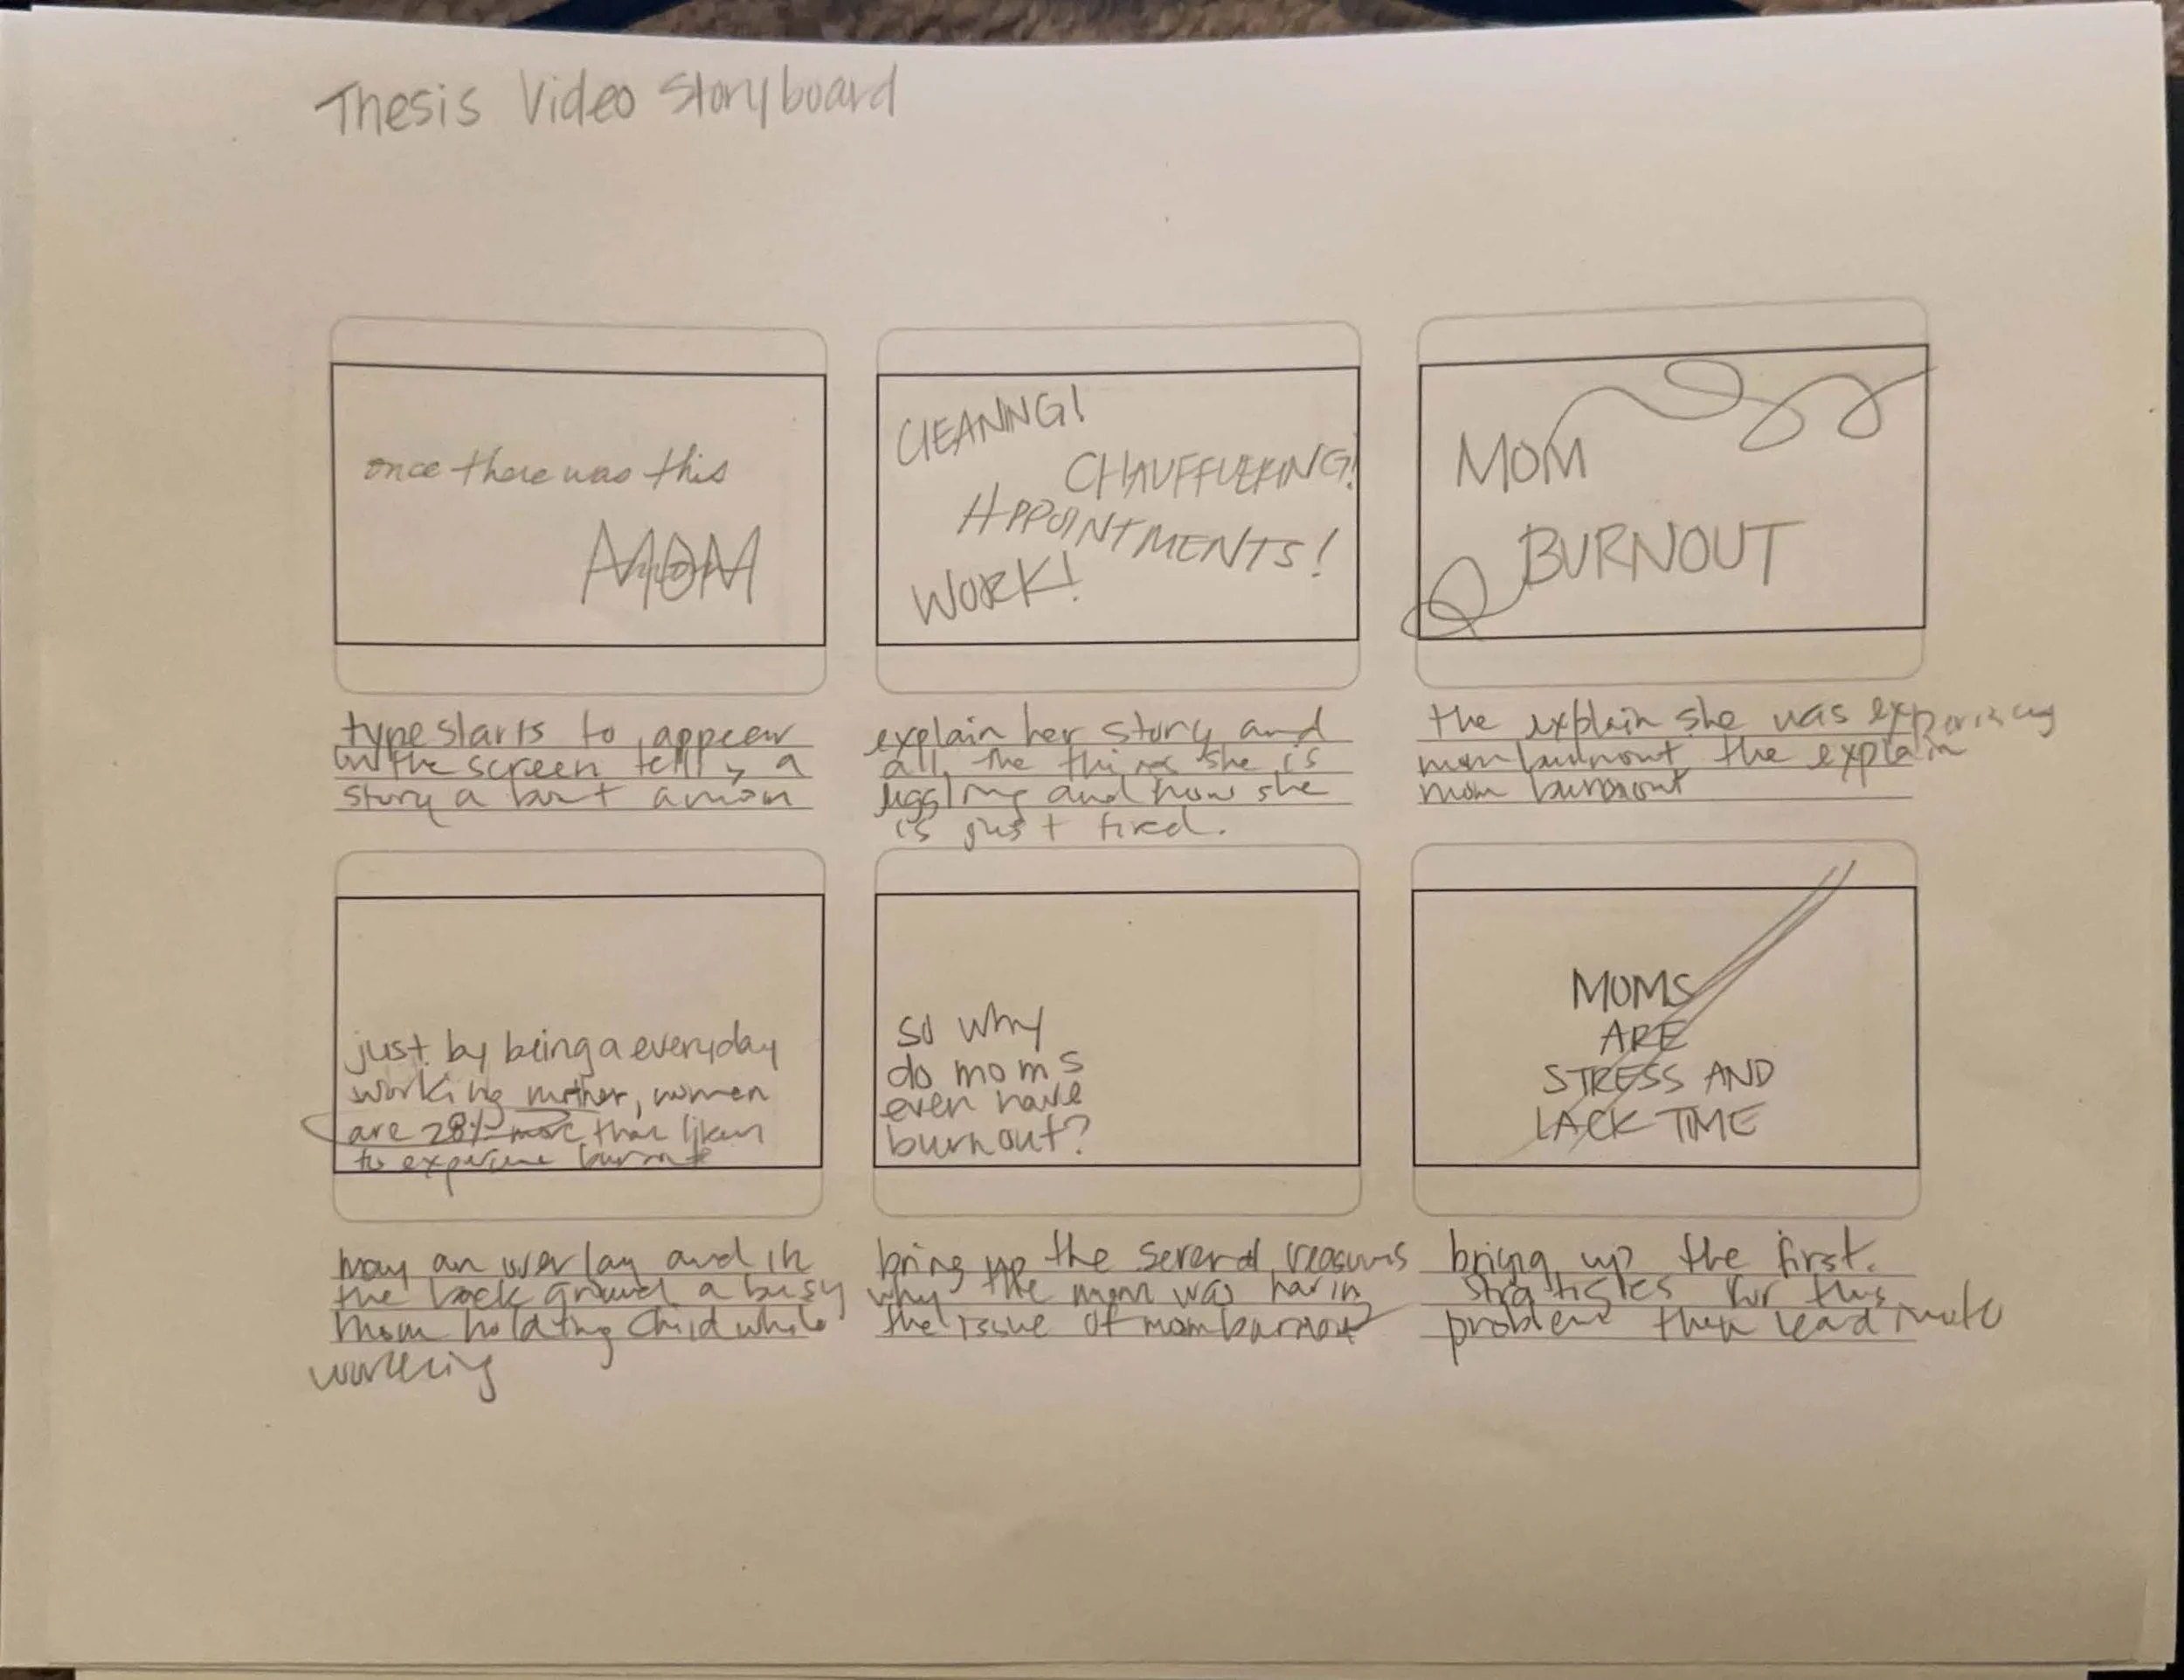 Thesis Video Storyboard
once there was this
MOM
type starts to appear
on the screen telling a
story about a mom
CLEANING!
CHAUFFUERING!
APPOINTMENTS!
WORK!
explain her story and
all the things she is
juggling and how she
is just tired.
MOM
BURNOUT
the explain she was experiencing
mom burnout the explain
mom burnout
just by being a everyday
working mother, women
are 28% more than likely
to experience burnout
an overlay and in
the back ground a busy
mom holding child while
working
so why
do moms
even have
burnout?
bring up the several reasons
why the mom was havin
the issue of mom burnout
MOMS
ARE
STRESS AND
LACK TIME
bring up the first
for this
problem then lead into